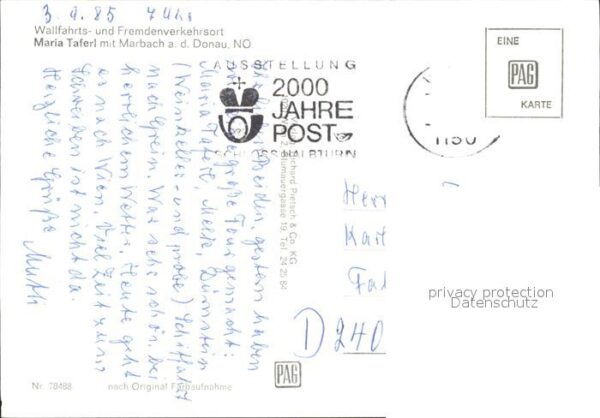 3. 9. 85 7 Uhr
Wallfahrts- und Fremdenverkehrsort
Maria Taferl mit Marbach a. d. Donau, NÖ
AUSSTELLUNG
2000
JAHRE
POST
SCHLOSS HALBTURN
1150
EINE
PAG
KARTE
Beiden, gestern haben
wir große Tour gemacht:
Maria Taferl, Melk, Dürnstein
(Weinkeller- und probe) Schiffahrt
nach Grein. War sehr schön, bei
herrlichem Wetter. Heute geht
es nach Wien. Viel Zeit zum
Schreiben ist nicht da.
Herzliche Grüße
Mutti
Richard Pietsch & Co. KG
Wien, Blumauergasse 19, Tel. 24 25 84
Herr
Karl
Fal
D 240
privacy protection
Datenschutz
PAG
Nr. 78488 nach Original Farbaufnahme